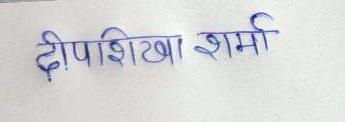 दीपाशिखा शर्मा